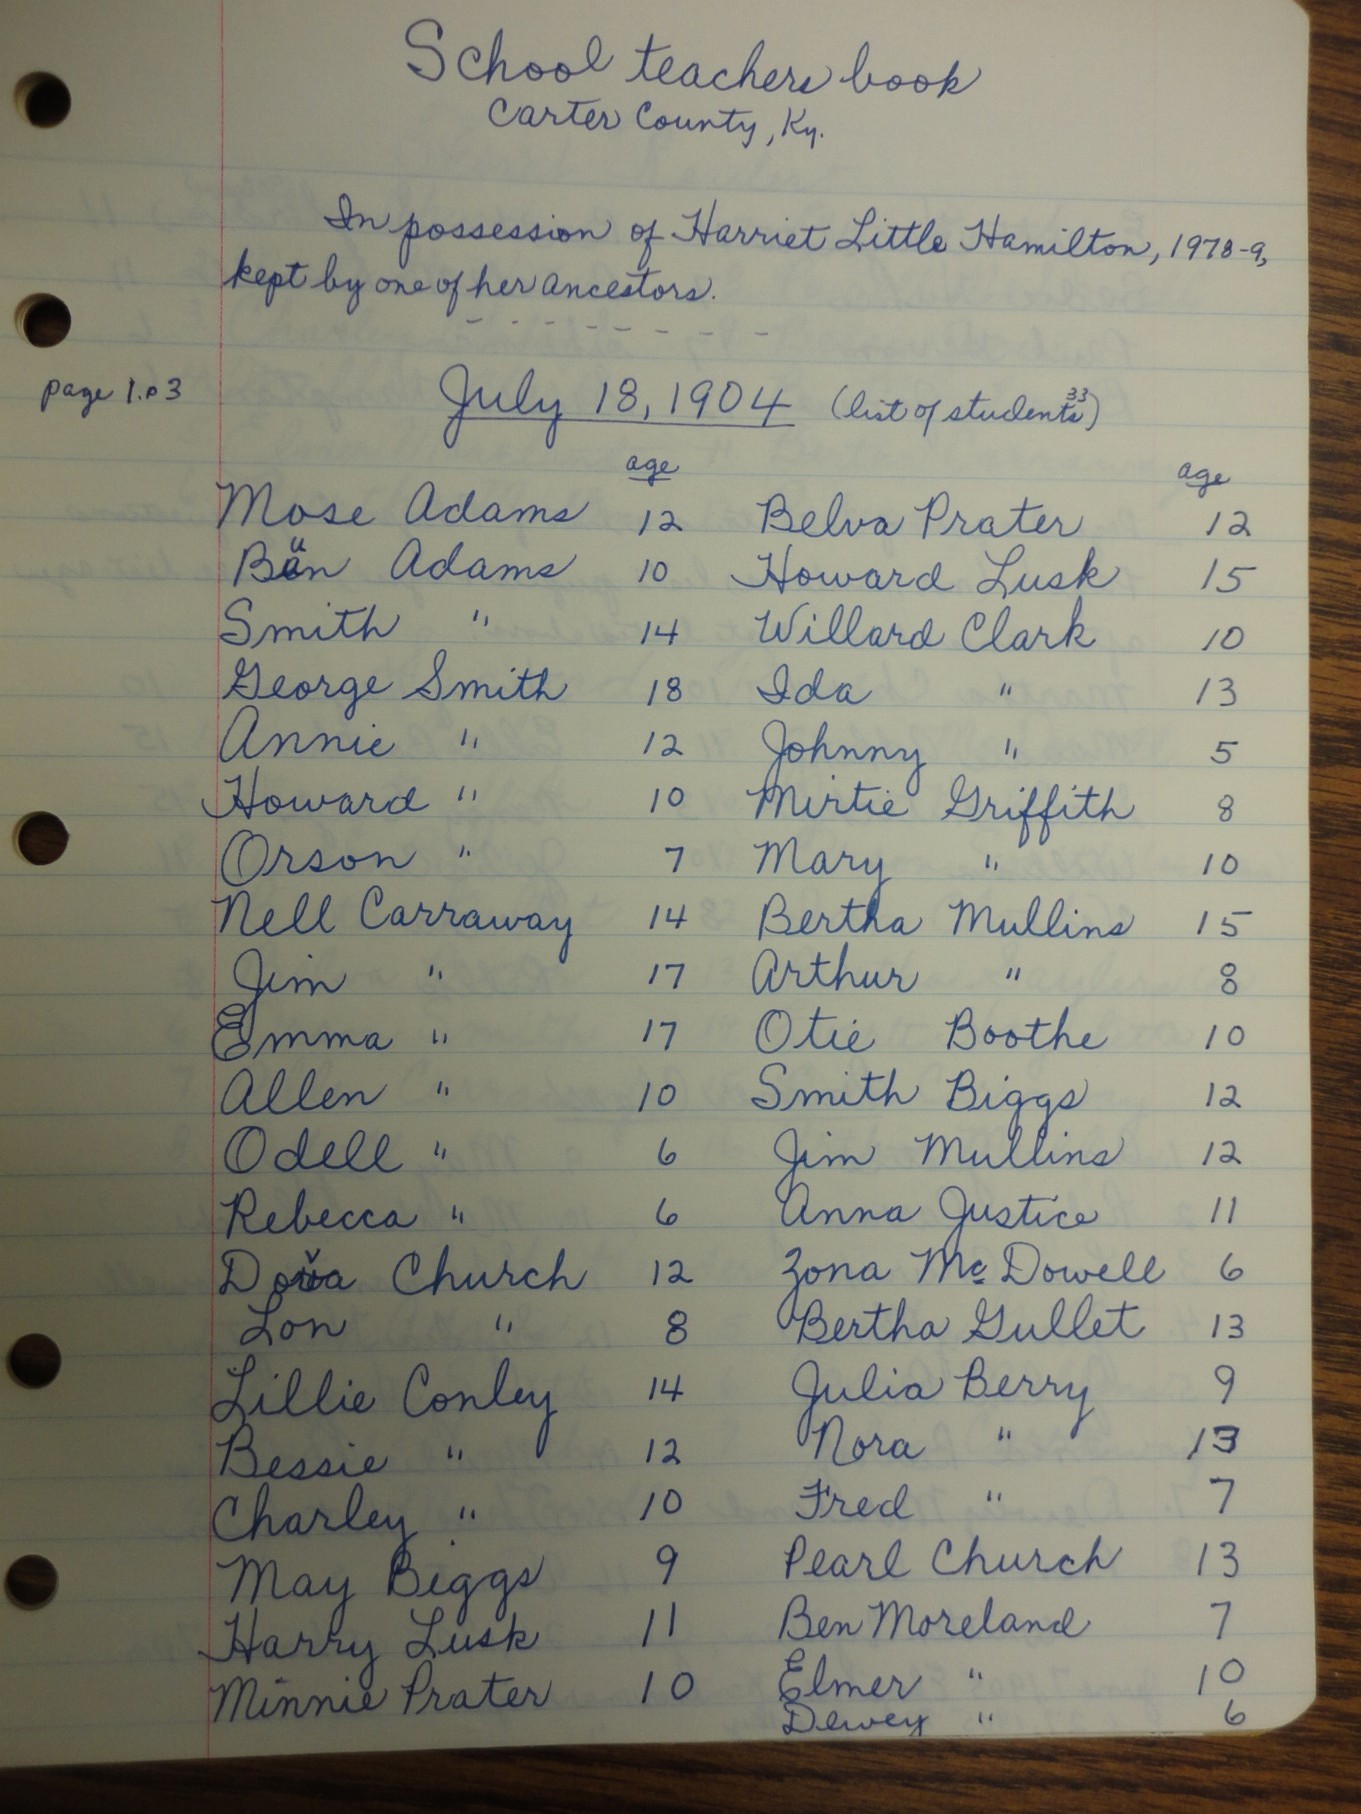 School teachers book
Carter County, Ky.
In possession of Harriet Little Hamilton, 1978-9,
kept by one of her ancestors.
- - - - - - - - -
page 1.p3 July 18, 1904 (list of students 33)
age age
Mose Adams 12 Belva Prater 12
Ban Adams 10 Howard Lusk 15
Smith " 14 Willard Clark 10
George Smith 18 Ida " 13
Annie " 12 Johnny " 5
Howard " 10 Mirtie Griffith 8
Orson " 7 Mary " 10
Nell Carraway 14 Bertha Mullins 15
Jim " 17 Arthur " 8
Emma " 17 Otie Boothe 10
Allen " 10 Smith Biggs 12
Odell " 6 Jim Mullins 12
Rebecca " 6 Anna Justice 11
Church 12 Zona McDowell 6
Lon " 8 Bertha Gullet 13
Lillie Conley 14 Julia Berry 9
Bessie " 12 Nora " 13
Charley " 10 Fred " 7
May Biggs 9 Pearl Church 13
Harry Lusk 11 Ben Moreland 7
Minnie Prater 10 Elmer " 10
Dewey " 6